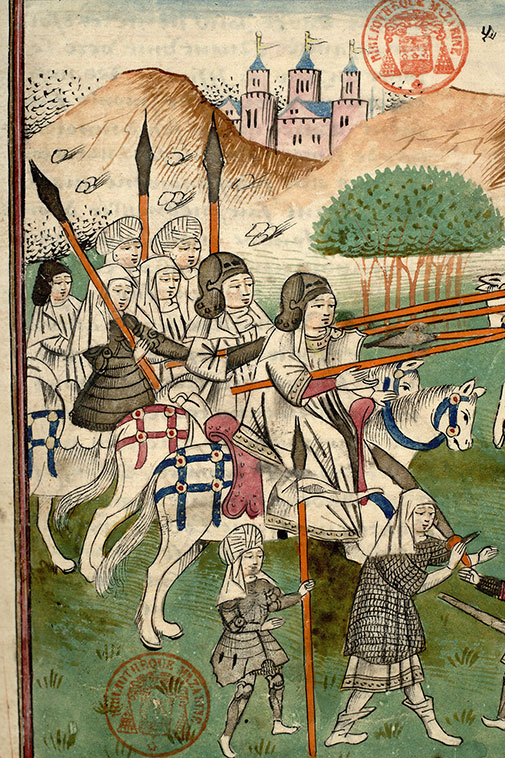 BIBLIOTHEQUE MAZARINE
BIBLIOTHEQUE MAZARINE